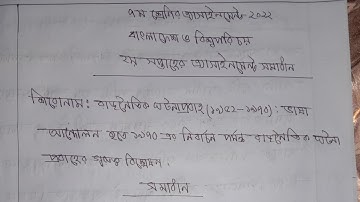 ৭ম শ্রেণির অ্যাসাইনমেন্ট ২০২২
বাংলাদেশ ও বিশ্বপরিচয়
২য় সপ্তাহের অ্যাসাইনমেন্ট সমাধান
শিরোনাম: রাজনৈতিক ঘটনাপ্রবাহ (১৯৫২-১৯৭০): ভাষা
আন্দোলন হতে ১৯৭০ এর নির্বাচন পর্যন্ত রাজনৈতিক ঘটনা
প্রবাহের গুরুত্ব বিশ্লেষণ।
সমাধান